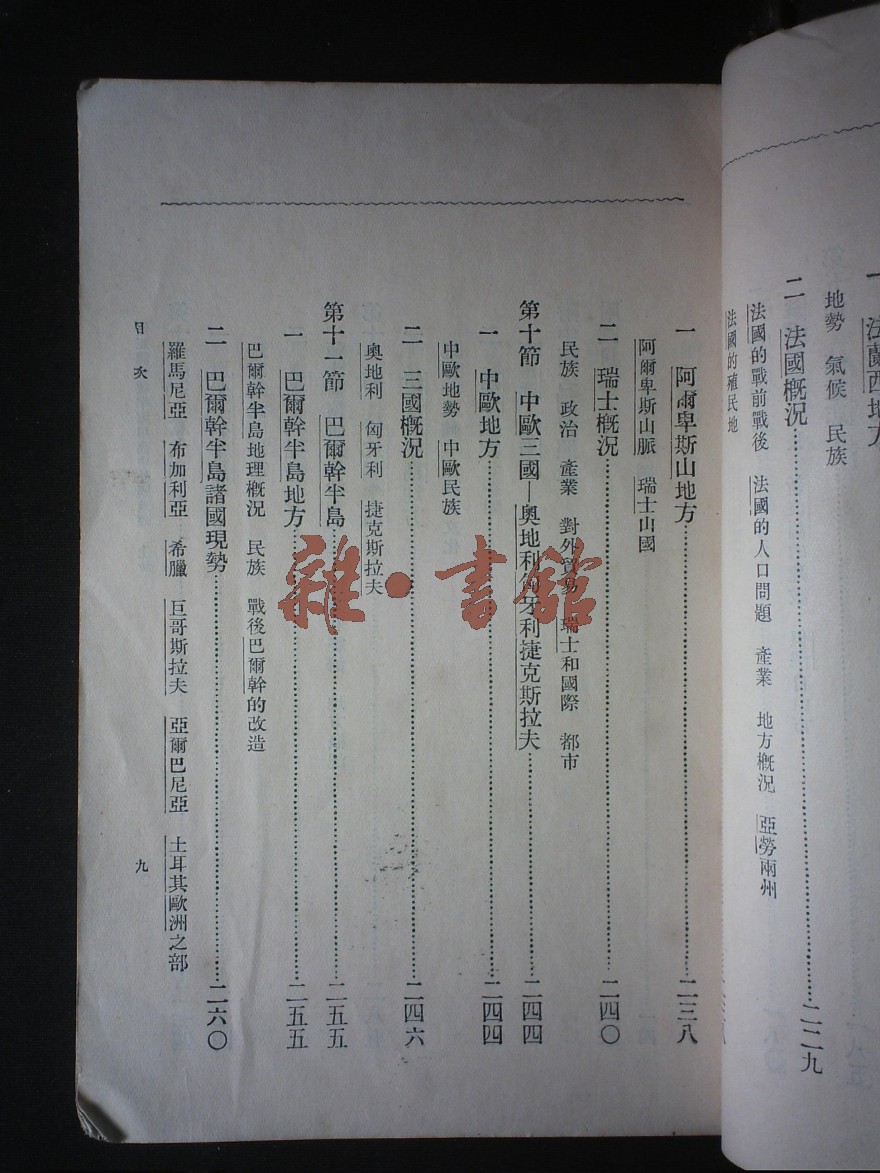 法蘭西地方
地勢　氣候　民族
二　法國概況…………二二九
法國的戰前戰後　法國的人口問題　產業　地方概況　亞勞兩州
法國的殖民地
一　阿爾卑斯山地方…………二三八
阿爾卑斯山脈　瑞士山國
二　瑞士概況…………二四〇
民族　政治　產業　對外貿易　瑞士和國際　都市
第十節　中歐三國—奧地利匈牙利捷克斯拉夫…………二四四
一　中歐地方…………二四四
中歐地勢　中歐民族
二　三國概況…………二四六
奧地利　匈牙利　捷克斯拉夫
第十一節　巴爾幹半島…………二五五
一　巴爾幹半島地方…………二五五
巴爾幹半島地理概況　民族　戰後巴爾幹的改造
二　巴爾幹半島諸國現勢…………二六〇
羅馬尼亞　布加利亞　希臘　巨哥斯拉夫　亞爾巴尼亞　土耳其歐洲之部
目次　九
雜·書館